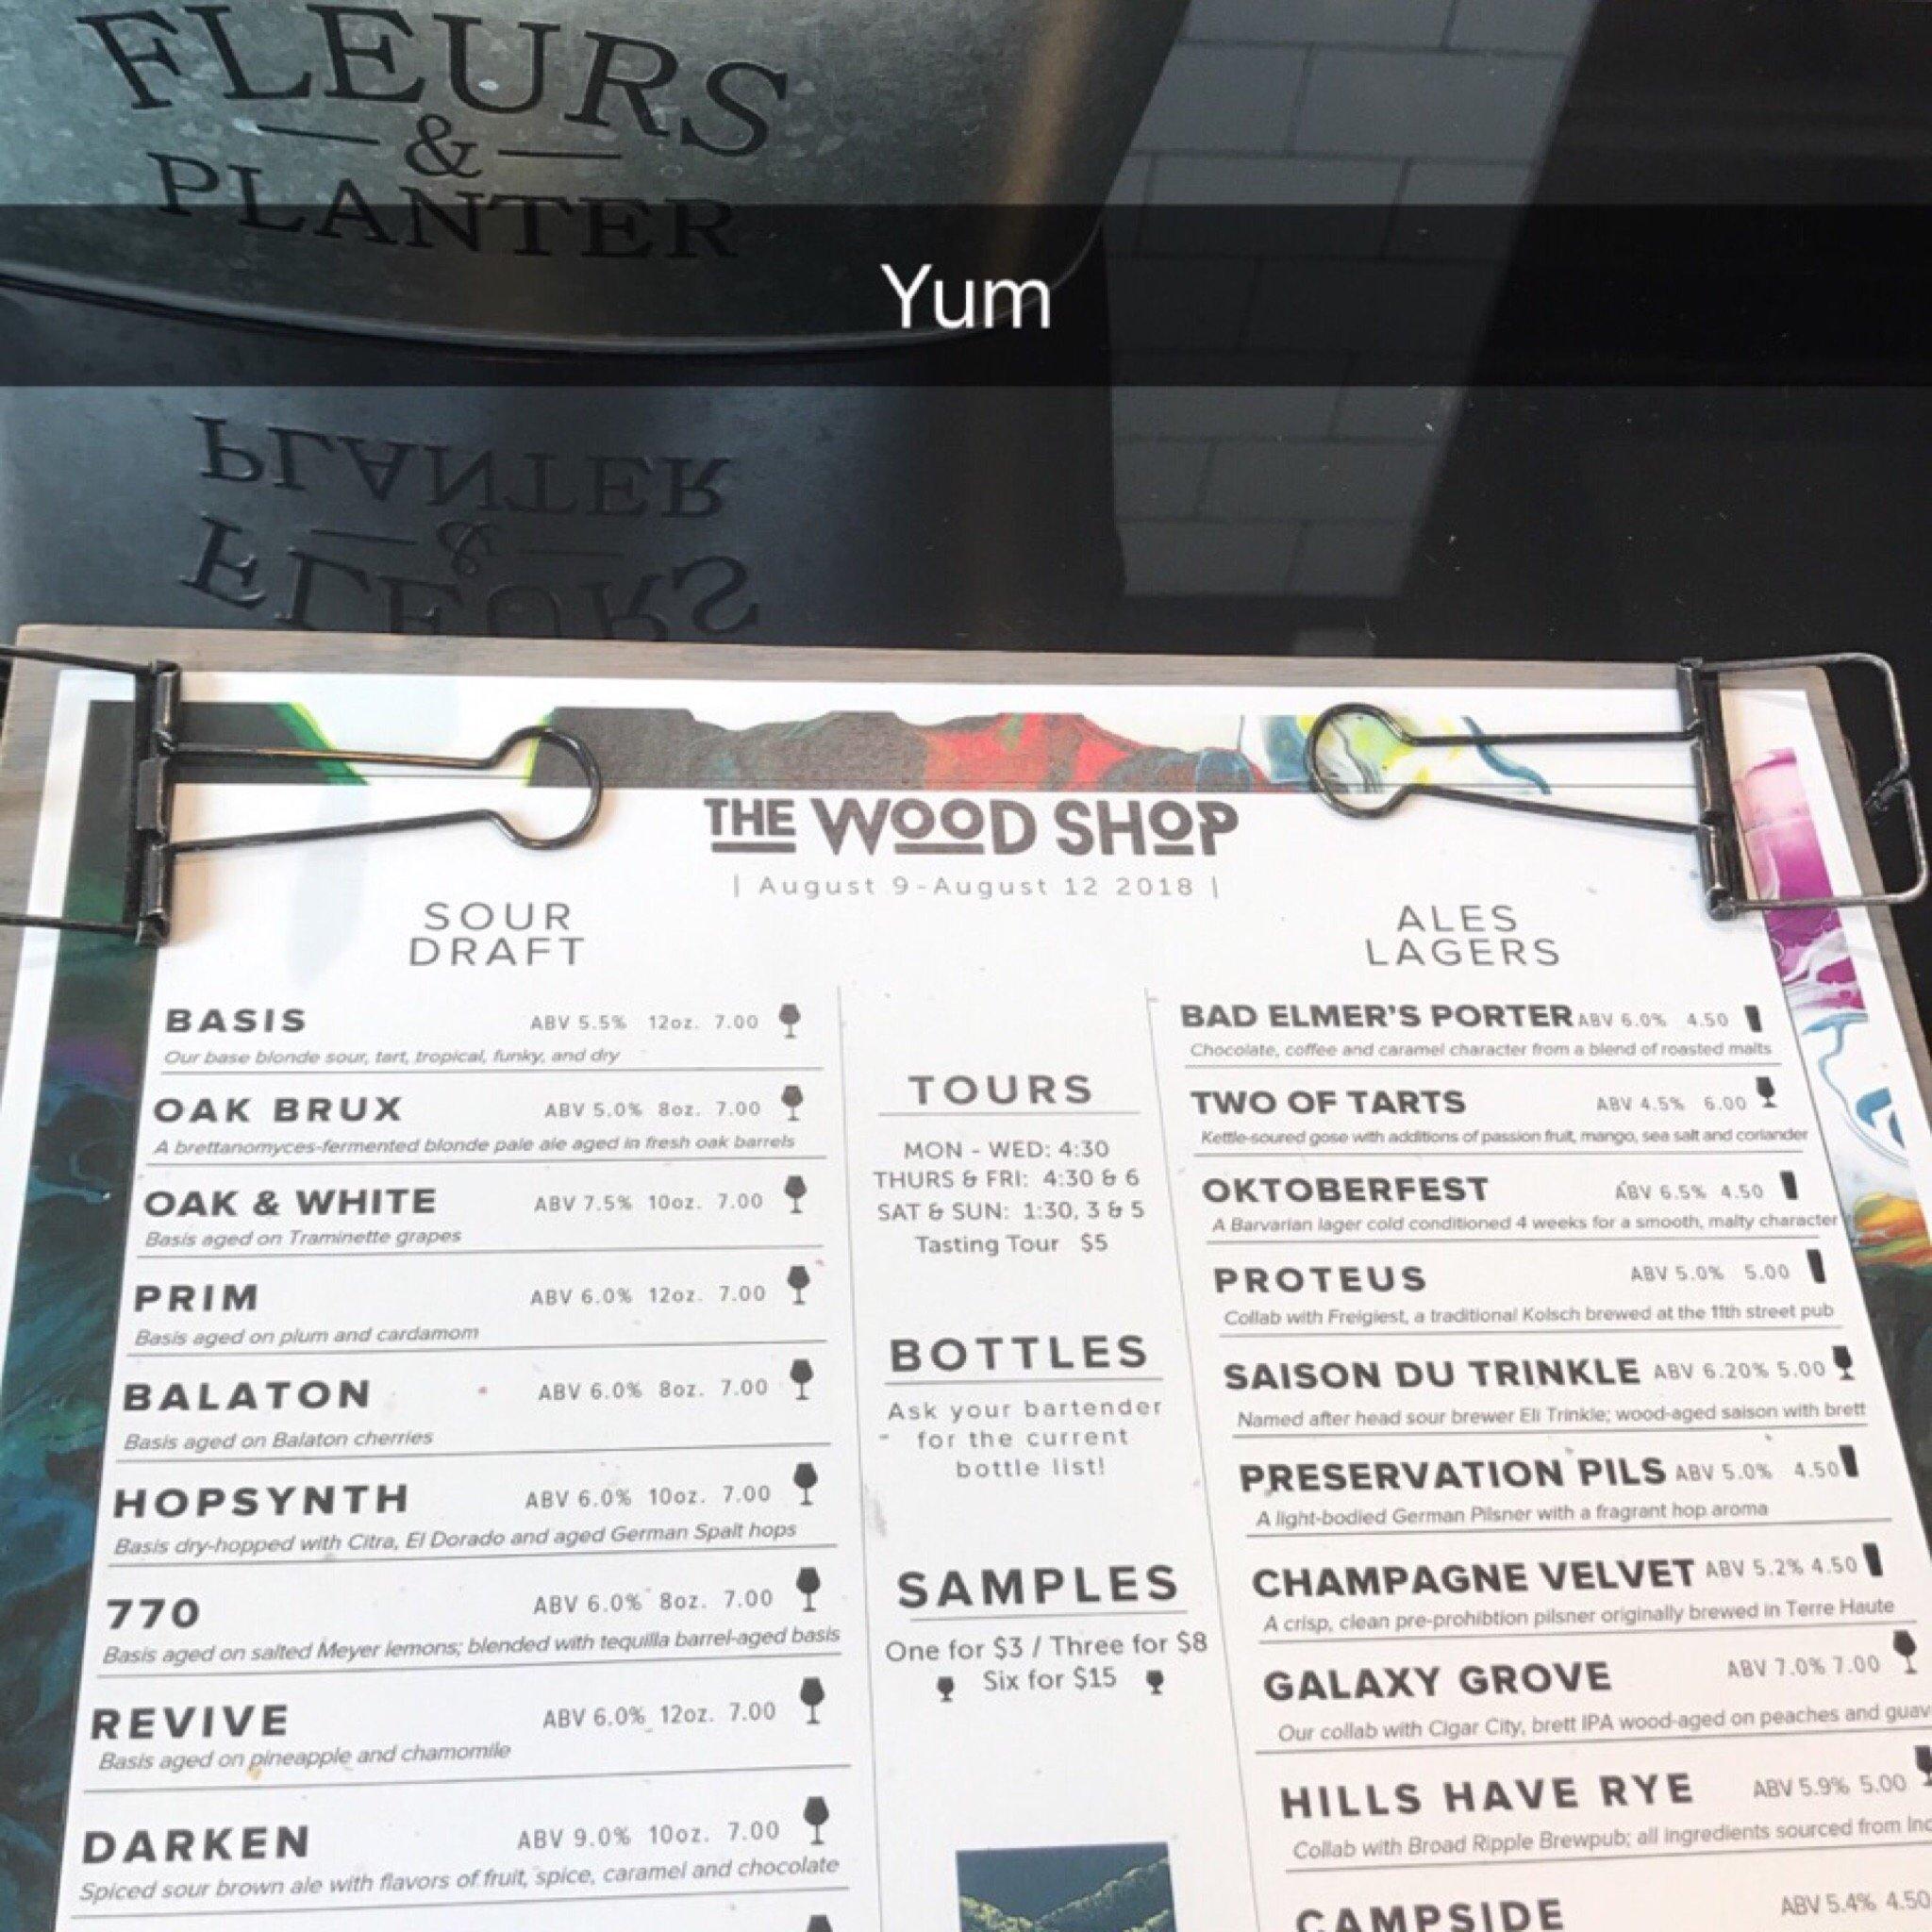 FLEURS
&
PLANTER
Yum
PLANTER
&
FLEURS
THE WOOD SHOP
| August 9-August 12 2018 |
SOUR
DRAFT
BASIS ABV 5.5% 12oz. 7.00
Our base blonde sour, tart, tropical, funky, and dry
OAK BRUX ABV 5.0% 8oz. 7.00
A brettanomyces-fermented blonde pale ale aged in fresh oak barrels
OAK & WHITE ABV 7.5% 10oz. 7.00
Basis aged on Traminette grapes
PRIM ABV 6.0% 12oz. 7.00
Basis aged on plum and cardamom
BALATON ABV 6.0% 8oz. 7.00
Basis aged on Balaton cherries
HOPSYNTH ABV 6.0% 10oz. 7.00
Basis dry-hopped with Citra, El Dorado and aged German Spalt hops
770 ABV 6.0% 8oz. 7.00
Basis aged on salted Meyer lemons; blended with tequilla barrel-aged basis
REVIVE ABV 6.0% 12oz. 7.00
Basis aged on pineapple and chamomile
DARKEN ABV 9.0% 10oz. 7.00
Spiced sour brown ale with flavors of fruit, spice, caramel and chocolate
TOURS
MON - WED: 4:30
THURS & FRI: 4:30 & 6
SAT & SUN: 1:30, 3 & 5
Tasting Tour $5
BOTTLES
Ask your bartender
for the current
bottle list!
SAMPLES
One for $3 / Three for $8
Six for $15
ALES
LAGERS
BAD ELMER'S PORTER ABV 6.0% 4.50
Chocolate, coffee and caramel character from a blend of roasted malts
TWO OF TARTS ABV 4.5% 6.00
Kettle-soured gose with additions of passion fruit, mango, sea salt and coriander
OKTOBERFEST ABV 6.5% 4.50
A Barvarian lager cold conditioned 4 weeks for a smooth, malty character
PROTEUS ABV 5.0% 5.00
Collab with Freigiest, a traditional Kolsch brewed at the 11th street pub
SAISON DU TRINKLE ABV 6.20% 5.00
Named after head sour brewer Eli Trinkle; wood-aged saison with brett
PRESERVATION PILS ABV 5.0% 4.50
A light-bodied German Pilsner with a fragrant hop aroma
CHAMPAGNE VELVET ABV 5.2% 4.50
A crisp, clean pre-prohibtion pilsner originally brewed in Terre Haute
GALAXY GROVE ABV 7.0% 7.00
Our collab with Cigar City, brett IPA wood-aged on peaches and guav
HILLS HAVE RYE ABV 5.9% 5.00
Collab with Broad Ripple Brewpub; all ingredients sourced from Ind
CAMPSIDE ABV 5.4% 4.50